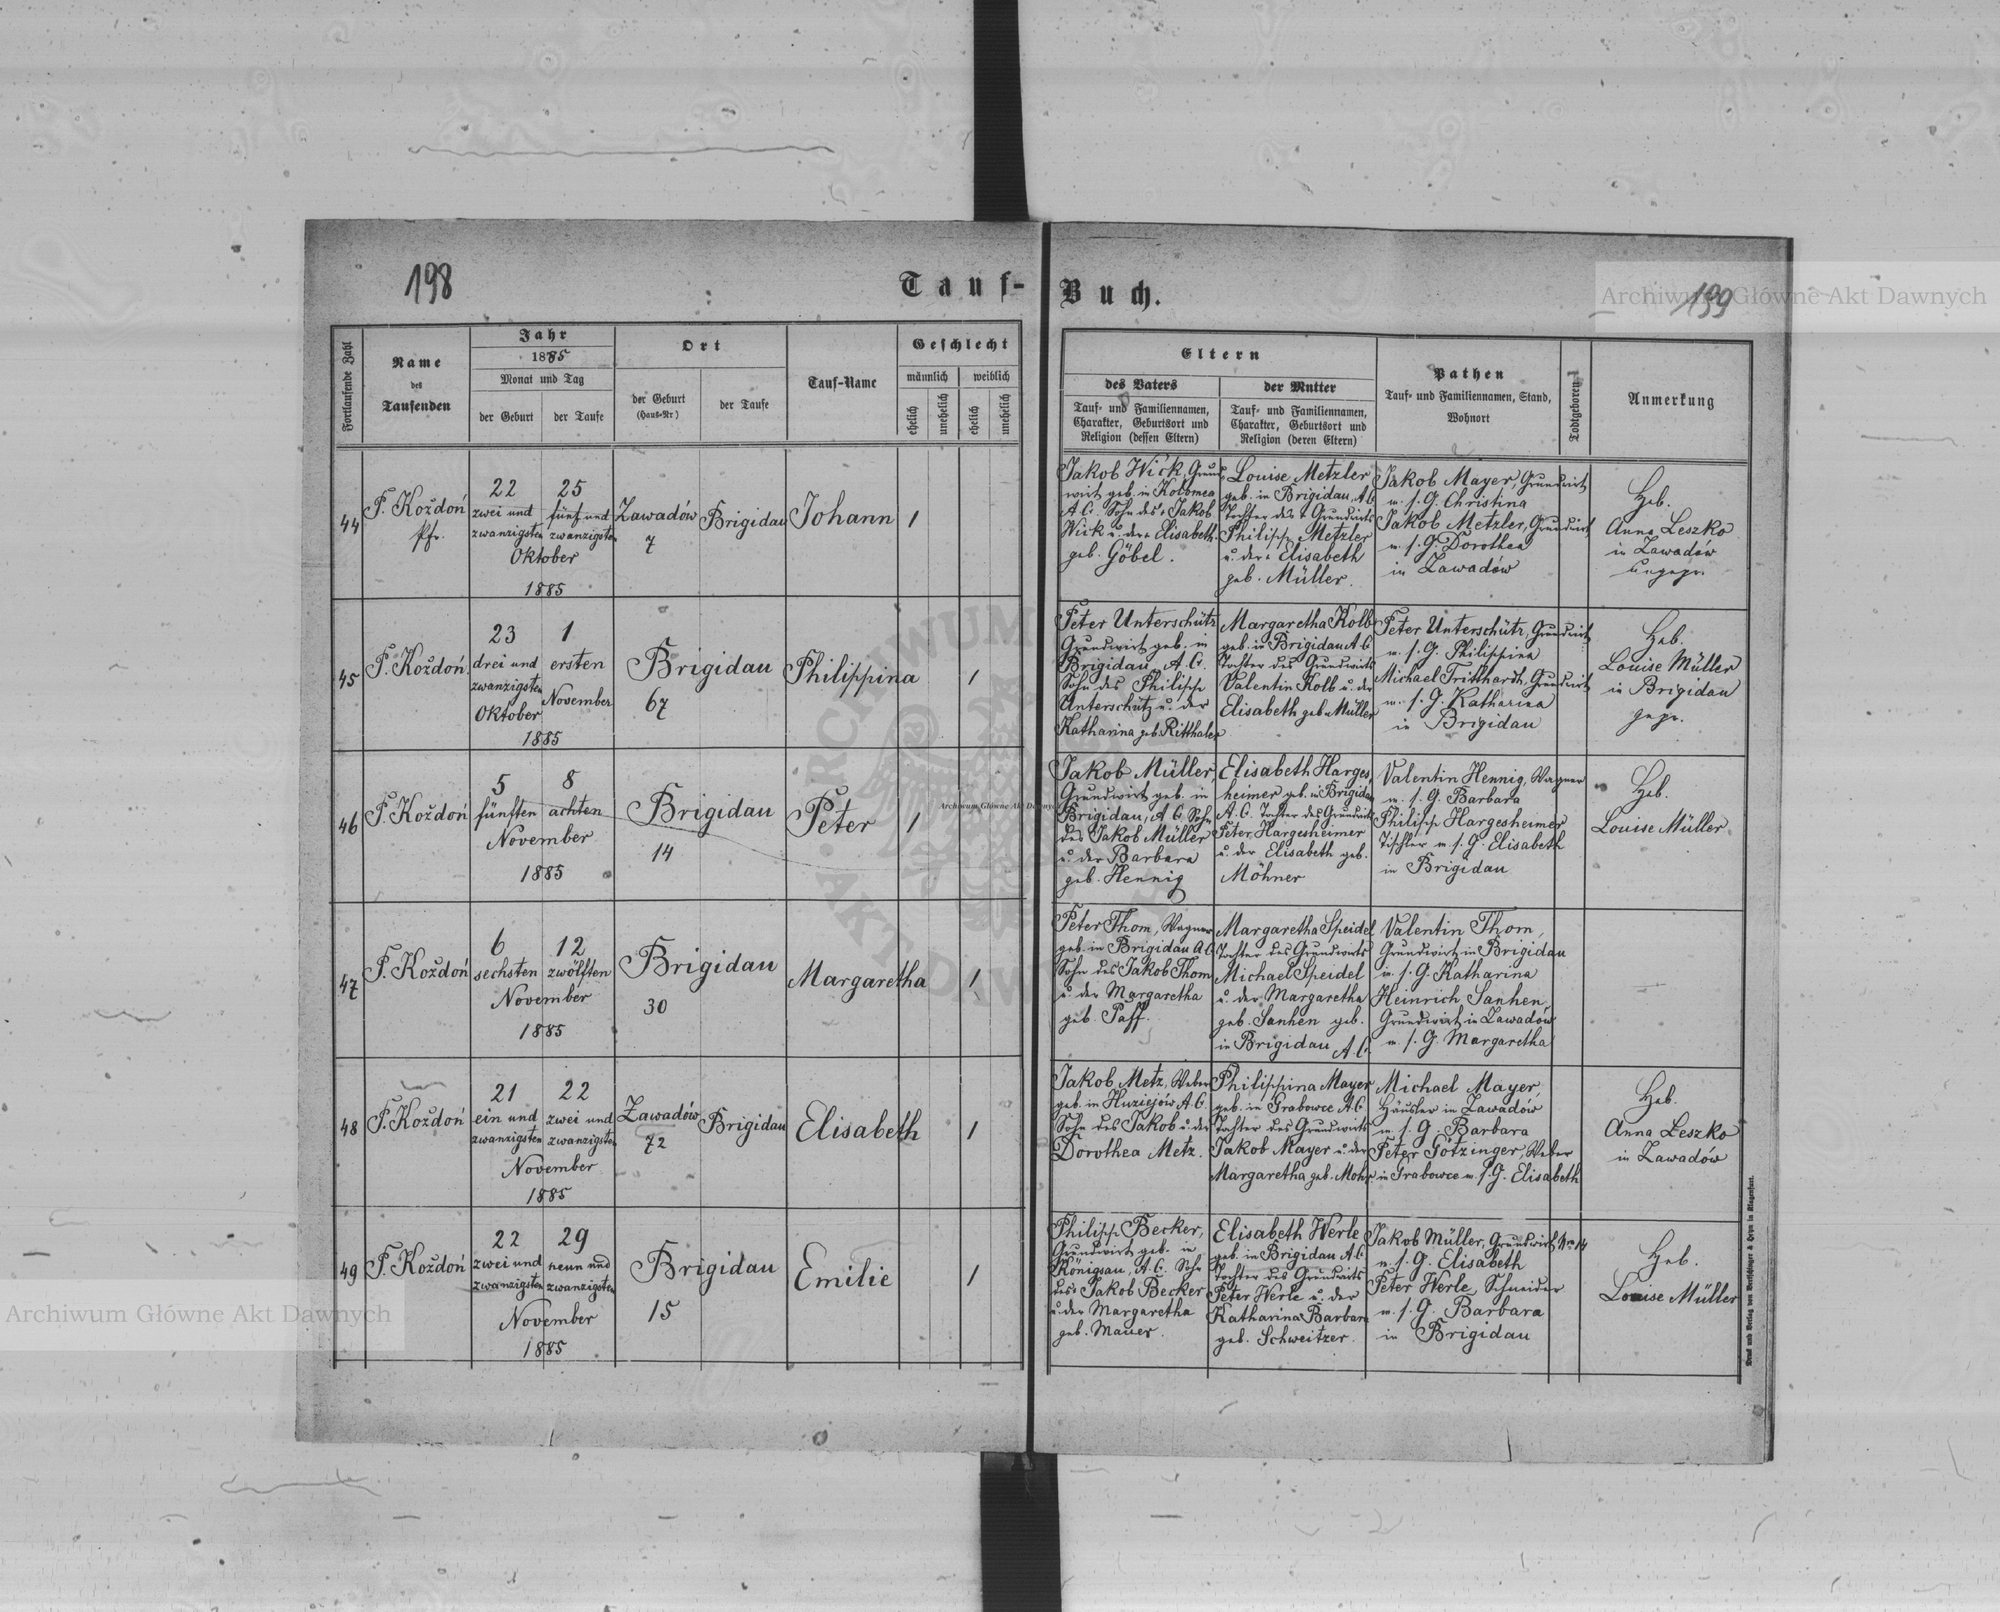 198
Tauf-
Buch.
199
Archiwum Główne Akt Dawnych
Fortlaufende Zahl
Name
des
Taufenden
Jahr
1885
Monat und Tag
der Geburt
der Taufe
Ort
der Geburt
(Haus-Nr)
der Taufe
Tauf-Name
Geschlecht
männlich
weiblich
ehelich
unehelich
ehelich
unehelich
Eltern
des Vaters
Tauf- und Familiennamen,
Charakter, Geburtsort und
Religion (dessen Eltern)
der Mutter
Tauf- und Familiennamen,
Charakter, Geburtsort und
Religion (deren Eltern)
Pathen
Tauf- und Familiennamen, Stand,
Wohnort
Todtgeboren
Anmerkung
44
F. Koždoń
Pfr.
22
zwei und
zwanzigsten
25
fünf und
zwanzigsten
Oktober
1885
Zawadów
7
Brigidau
Johann
1
Jakob Wick, Grund
wirt geb. in Kolomea
A.C. Sohn des + Jakob
Wick u. der + Elisabeth
geb. Göbel.
Louise Metzler
geb. in Brigidau, A.C.
Tochter des + Grundwirts
Philipp Metzler
u. der + Elisabeth
geb. Müller.
Jakob Mayer, Grundwirt
m. s. G. Christina
Jakob Metzler, Grundwirt
m. s. G. Dorothea
in Zawadów
Heb.
Anna Leszko
in Zawadów
ungepr.
45
F. Koždoń
23
drei und
zwanzigsten
Oktober
1
ersten
November
1885
Brigidau
67
Philippina
1
Peter Unterschütz
Grundwirt geb. in
Brigidau, A.C.
Sohn des Philipp
Unterschütz u. der
Katharina geb. Ritthaler
Margaretha Kolb
geb. in Brigidau A.C.
Tochter des Grundwirts
Valentin Kolb u. der
Elisabeth geb. Müller
Peter Unterschütz, Grundwirt
m. s. G. Philippina
Michael Trinthardt, Grundwirt
m. s. G. Katharina
in Brigidau
Heb.
Louise Müller
in Brigidau
gepr.
46
F. Koždoń
5
fünften
8
achten
November
1885
Brigidau
14
Peter
1
Jakob Müller,
Grundwirt geb. in
Brigidau, A.C. Sohn
des Jakob Müller
u. der Barbara
geb. Hennig
Elisabeth Harges
heimer geb. in Brigidau
A.C. Tochter des Grundwirts
Peter Hargesheimer
u. der Elisabeth geb.
Möhner
Valentin Hennig, Wagner
m. s. G. Barbara
Philipp Hargesheimer
Tischler m. s. G. Elisabeth
in Brigidau
Heb.
Louise Müller.
47
F. Koždoń
6
sechsten
12
zwölften
November
1885
Brigidau
30
Margaretha
1
Peter Thom, Wagner
geb. in Brigidau A.C.
Sohn des Jakob Thom
u. der Margaretha
geb. Paff.
Margaretha Speidel
Tochter des Grundwirts
Michael Speidel
u. der Margaretha
geb. Sanhen geb.
in Brigidau A.C.
Valentin Thom,
Grundwirt in Brigidau
m. s. G. Katharina
Heinrich Sanhen,
Grundwirt in Zawadów
m. s. G. Margaretha
48
F. Koždoń
21
ein und
zwanzigsten
22
zwei und
zwanzigsten
November
1885
Zawadów
72
Brigidau
Elisabeth
1
Jakob Metz, Weber
geb. in Huziejów A.C.
Sohn des Jakob u. der
Dorothea Metz.
Philippina Mayer
geb. in Grabowce A.C.
Tochter des Grundwirts
Jakob Mayer u. der
Margaretha geb. Mohr.
Michael Mayer,
Häusler in Zawadów
m. s. G. Barbara
Peter Götzinger, Weber
in Grabowce m. s. G. Elisabeth
Heb.
Anna Leszko
in Zawadów
49
F. Koždoń
22
zwei und
zwanzigsten
29
neun und
zwanzigsten
November
1885
Brigidau
15
Emilie
1
Philipp Becker,
Grundwirt geb. in
Königsau, A.C. Sohn
des Jakob Becker
u. der Margaretha
geb. Mauer.
Elisabeth Werle
geb. in Brigidau A.C.
Tochter des Grundwirts
Peter Werle u. der
Katharina Barbara
geb. Schweitzer.
Jakob Müller, Grundwirt Nro 14
m. s. G. Elisabeth
Peter Werle, Schneider
m. s. G. Barbara
in Brigidau
Heb.
Louise Müller
Archiwum Główne Akt Dawnych
Archiwum Główne Akt Dawnych
ARCHIWUM
AKT